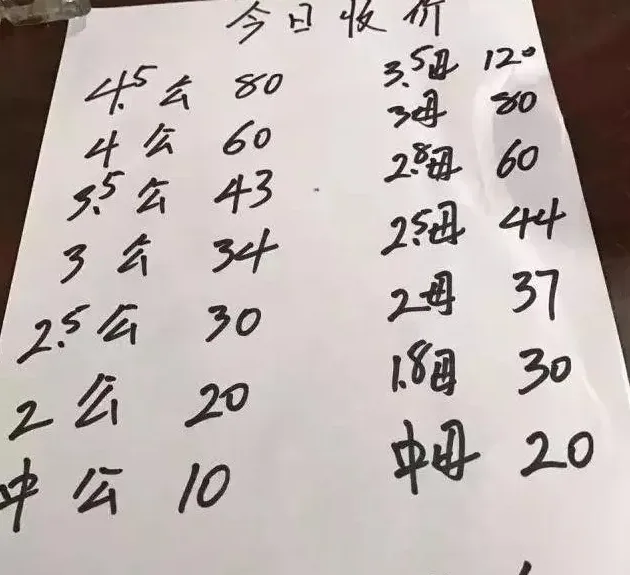 今日收价
4.5公 80 3.5母 120
4公 60 3母 80
3.5公 43 2.8母 60
3公 34 2.5母 44
2.5公 30 2母 37
2公 20 1.8母 30
中公 10 中母 20